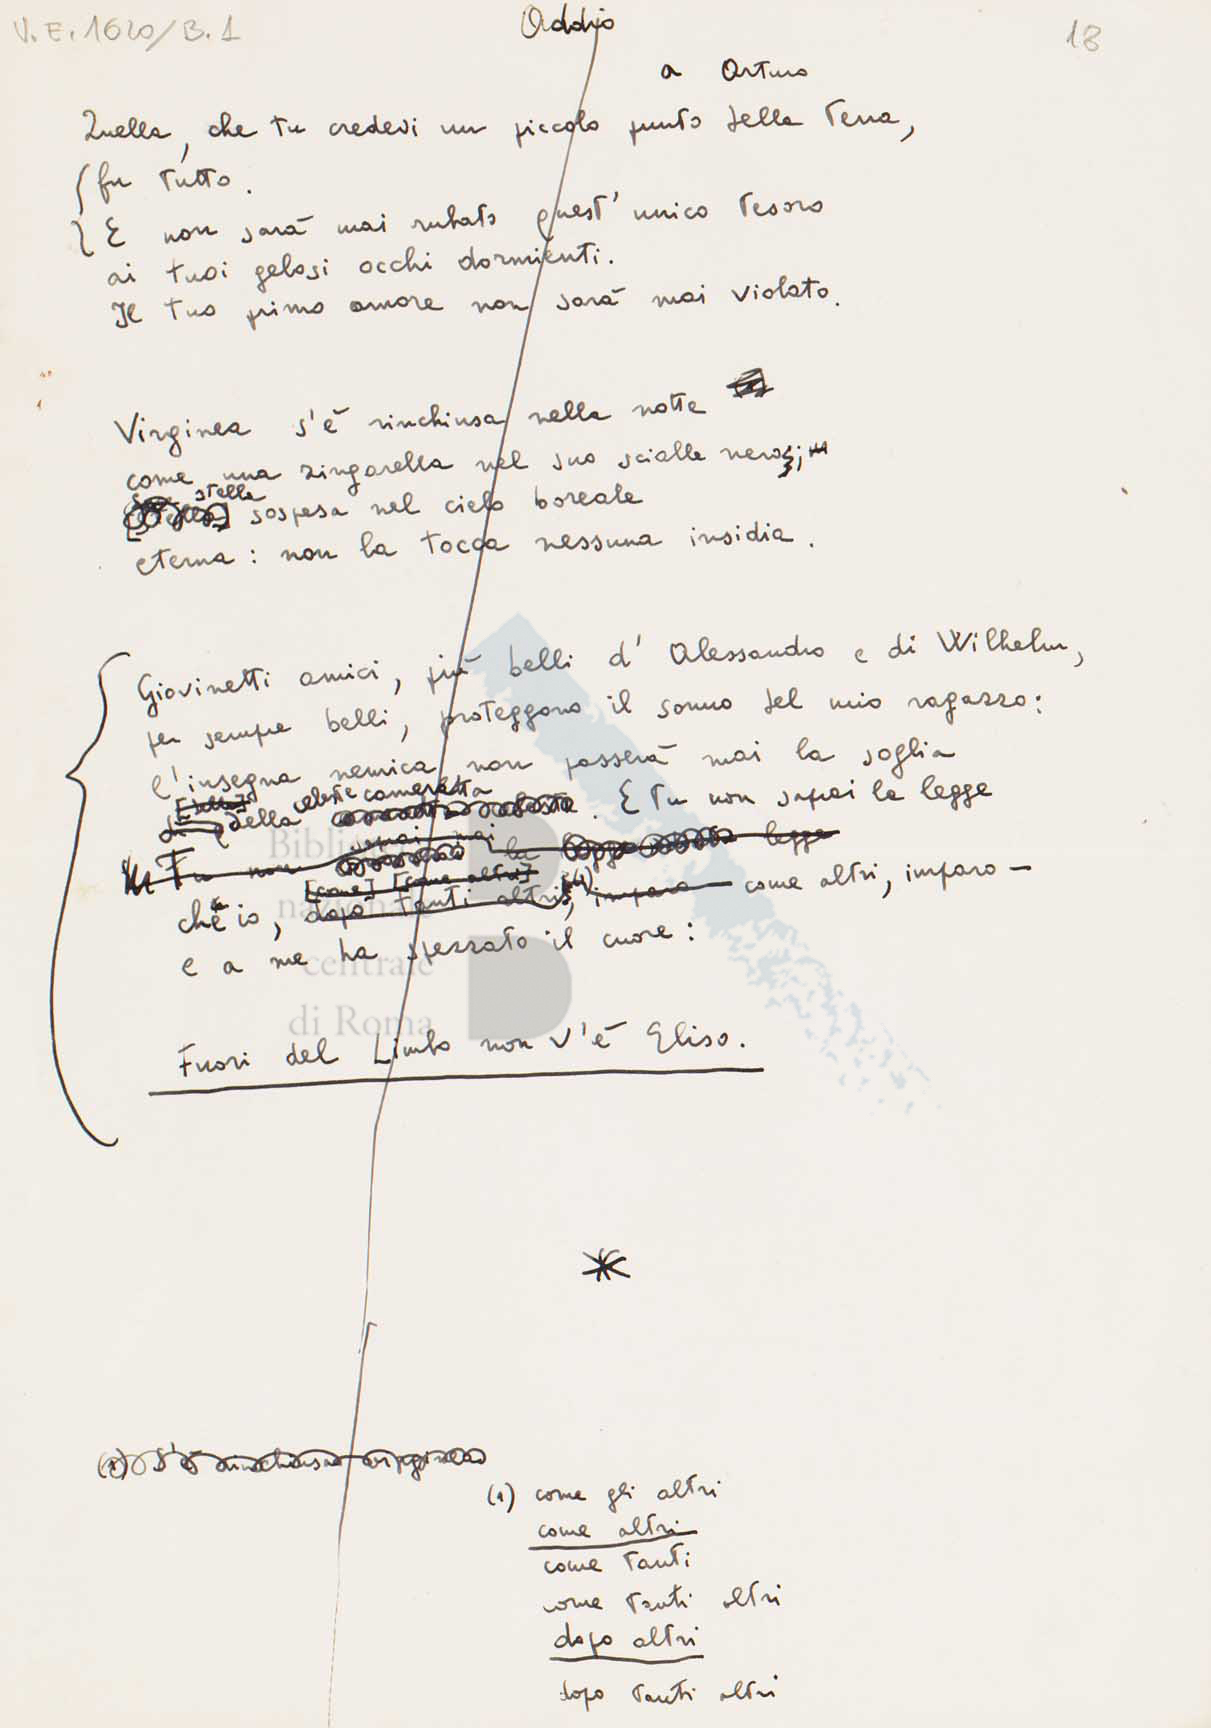 V.E. 1620/B.1
Addio
18
a Arturo
Quella, che tu credevi un piccolo punto della terra,
fu tutto.
E non sarà mai rubato quest'unico tesoro
ai tuoi gelosi occhi dormienti.
Il tuo primo amore non sarà mai violato.
Virginea s'è rinchiusa nella notte
come una zingarella nel suo scialle nero;
stella
sospesa nel cielo boreale
eterna: non la tocca nessuna insidia.
Giovinetti amici, più belli d'Alessandro e di Wilhelm,
per sempre belli, proteggono il sonno del mio ragazzo:
l'insegna nemica non passerà mai la soglia
celeste cameretta
della . E tu non saprai la legge
saprai mai
Tu non la legge legge
[come] [come altri]
ch'io, dopo tanti altri, (1) imparo come altri, imparo —
e a me ha spezzato il cuore:
Fuori del Limbo non v'è Eliso.
Biblioteca
nazionale
centrale
di Roma
(1) S'è rinchiusa virginea
(1) come gli altri
come altri
come tanti
come tanti altri
dopo altri
dopo tanti altri